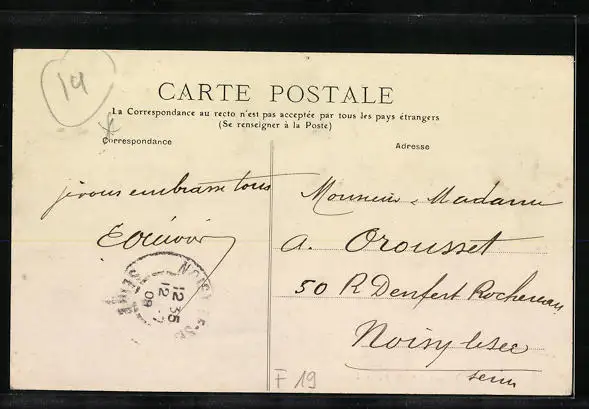 14
CARTE POSTALE
La Correspondance au recto n'est pas acceptée par tous les pays étrangers
(Se renseigner à la Poste)
Correspondance
Adresse
je vous embrasse tous
NOISY-LE-SEC
SEINE
12 35
12
09
Monsieur & Madame
A. Orousset
50 R Denfert Rochereau
Noisy le sec
Seine
F 19